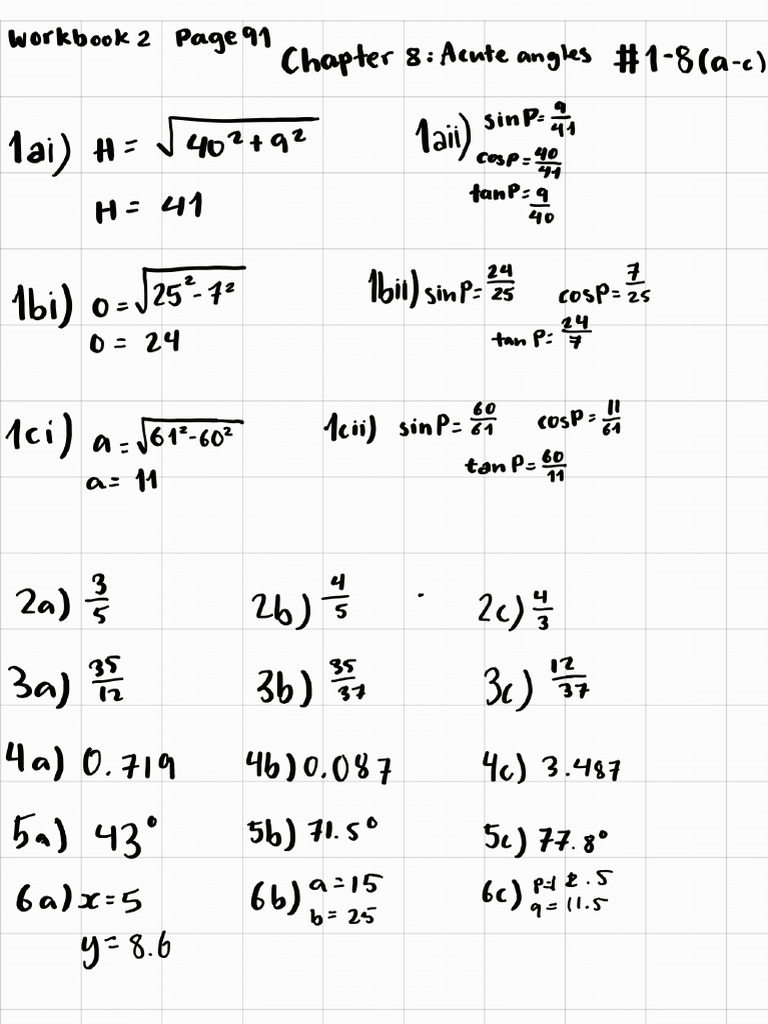 Workbook 2 Page 91
Chapter 8: Acute angles #1-8(a-c)
1ai) H = √40²+9²
H = 41
1aii) sinP = 9/41
cosP = 40/41
tanP = 9/40
1bi) O = √25²-7²
O = 24
1bii) sinP = 24/25 cosP = 7/25
tanP = 24/7
1ci) a = √61²-60²
a = 11
1cii) sinP = 60/61 cosP = 11/61
tanP = 60/11
2a) 3/5 2b) 4/5 2c) 4/3
3a) 35/12 3b) 35/37 3c) 12/37
4a) 0.719 4b) 0.087 4c) 3.487
5a) 43° 5b) 71.5° 5c) 77.8°
6a) x=5
y= 8.6
6b) a=15
b= 25
6c) p= .5
q= 11.5